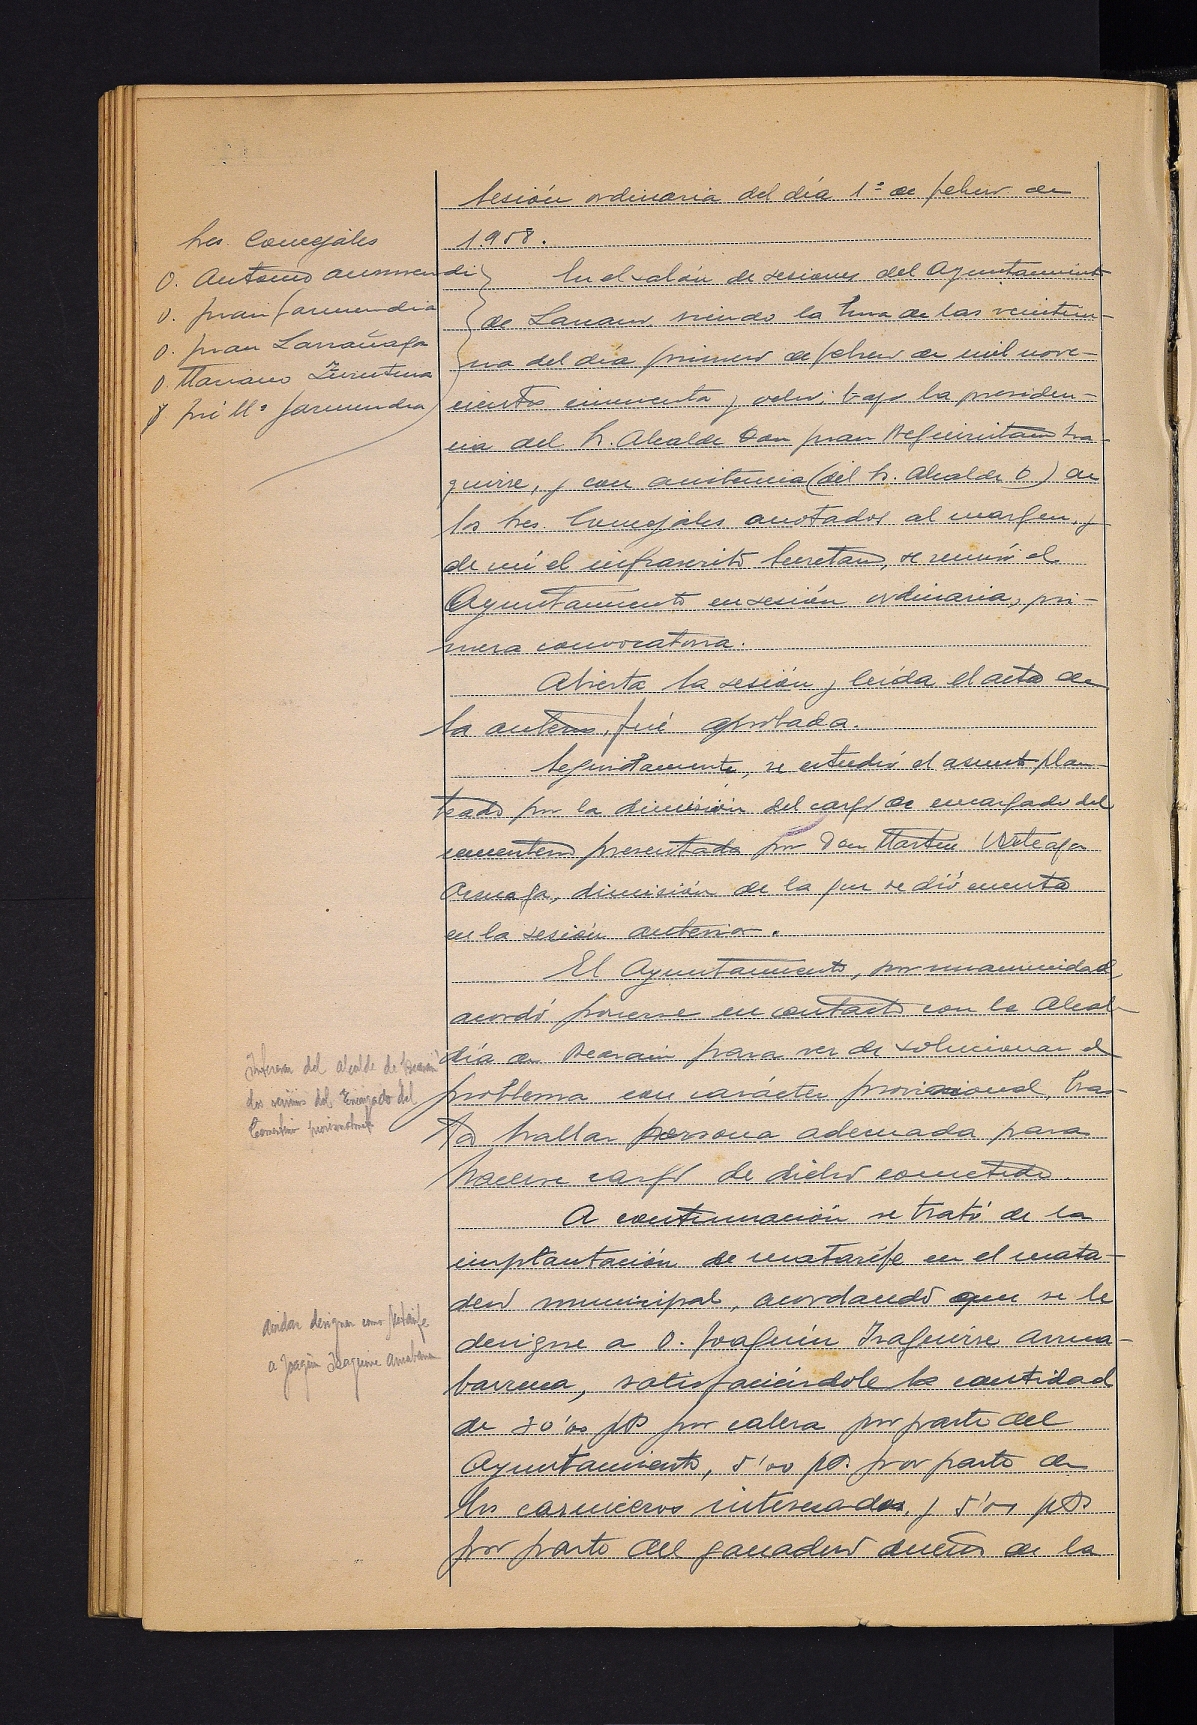 Sesión ordinaria del día 1º de febrero de
1.958.
Sres. Concejales
D. Antonio Aunmendi
D. Juan Garmendia
D. Juan Larrañaga
D. Mariano Zurutuza
D. José Mª Garmendia
En el salón de sesiones del Ayuntamiento
de siendo la hora de las veintiu-
na del día primero de febrero de mil nove-
cientos cincuenta y ocho; bajo la presiden-
cia del Sr. Alcalde Don Juan Beguiristain Ira-
guirre, y con asistencia (del Sr. Alcalde D) de
los Sres. Concejales anotados al margen, y
de mí el infrascrito Secretario, se reunió el
Ayuntamiento en sesión ordinaria, pri-
mera convocatoria.
Abierta la sesión y leída el acta de
la anterior, fué aprobada.
Seguidamente, se estudió el asunto plan-
teado por la dimisión del cargo de encargado del
cementerio presentada por Don Martín Urteaga
dimisión de la que se dió cuenta
en la sesión anterior.
El Ayuntamiento, por unanimidad,
acordó ponerse en contacto con la Alcal-
día de Beasain para ver de solucionar el
problema con carácter provisional, has-
ta hallar persona adecuada para
hacerse cargo de dicho cometido.
Interesar del alcalde de Beasain
los servicios del Encargado del
Cementerio provisionalmente
A continuación se trató de la
implantación de matarife en el mata-
dero municipal, acordando que se le
designe a D. Joaquín Iraguirre Arrua-
barrena, satisfaciéndole la cantidad
de 20'00 pts por cabeza por parte del
Ayuntamiento, 5'00 pts. por parte de
los carniceros interesados, y 5'00 pts
por parte del ganadero dueño de la
acordar designar como Matarife
a Joaquín Iraguirre Arruabarrena